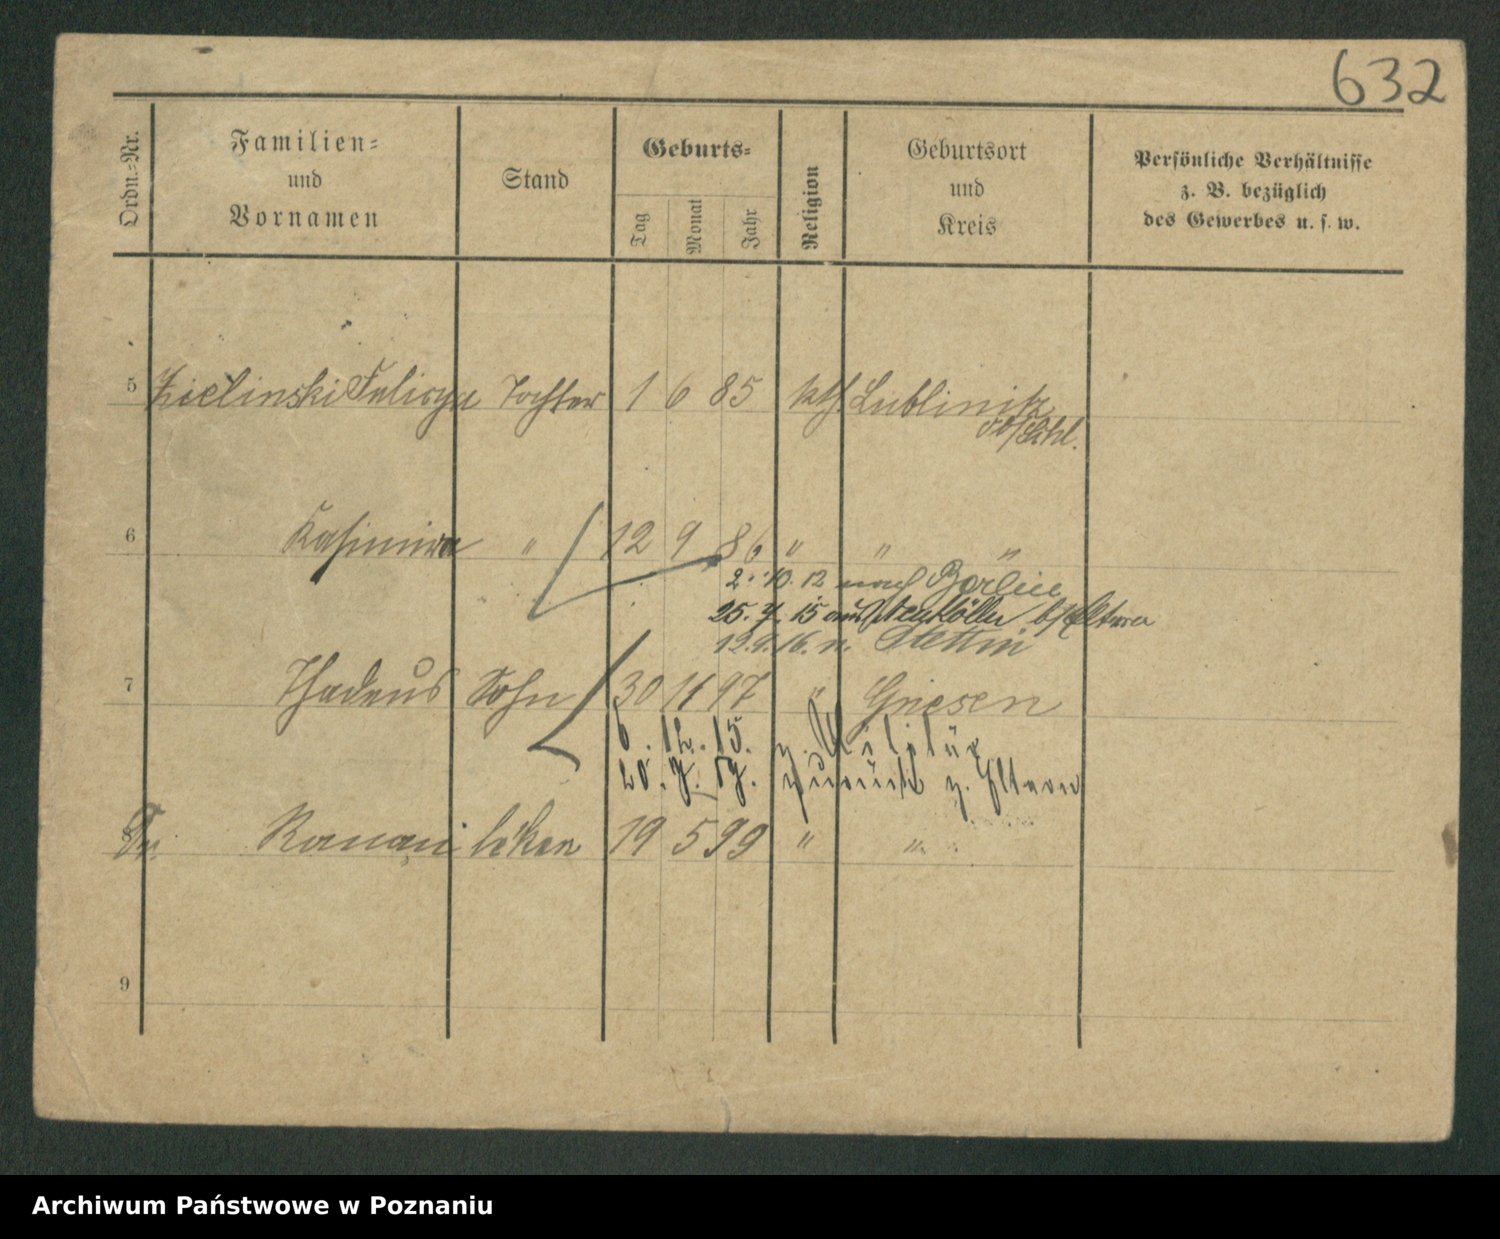 632
Ordn.-Nr.
Familien-
und
Vornamen
Stand
Geburts-
Tag
Monat
Jahr
Religion
Geburtsort
und
Kreis
Persönliche Verhältnisse
z. B. bezüglich
des Gewerbes u. s. w.
5 Zielinski Felicya Tochter 1 6 85 kth Lublinitz
6 Kasimira " 12 9 86 " " "
2. 10. 12 nach Berlin
25. 7. 15 aus Neukölln b/Eltern
12.9.16. n. Stettin
7 Thadeus Sohn 30 11 97 " Gnesen
6. 12. 15. z. Militär
20. 7. 17. zurück z. Eltern
8 Roman 19 5 99 " "
9
Archiwum Państwowe w Poznaniu